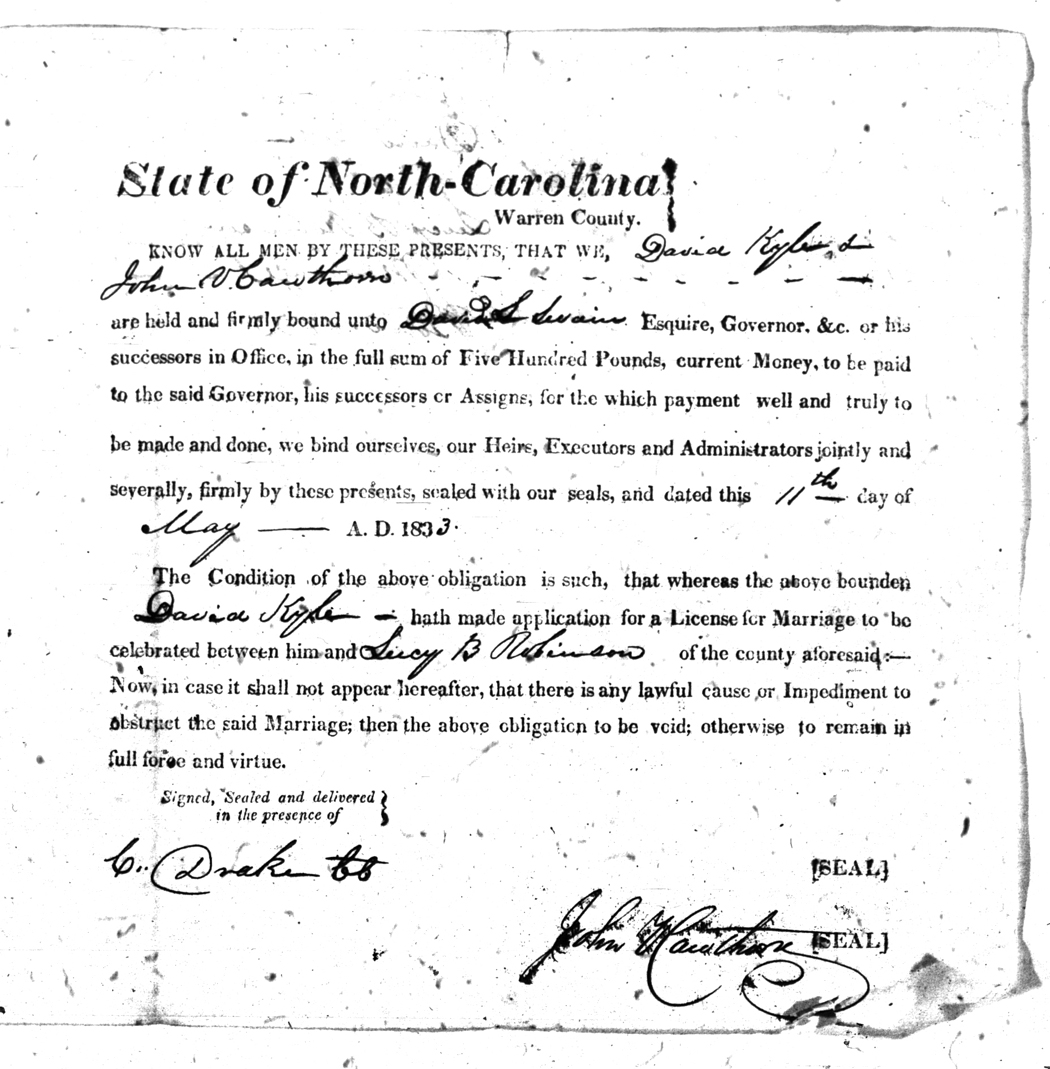 State of North-Carolina
Warren County.
KNOW ALL MEN BY THESE PRESENTS, THAT WE, David Kyle &
John V Cawthorn
are held and firmly bound unto David L Swain Esquire, Governor, &c. or his
successors in Office, in the full sum of Five Hundred Pounds, current Money, to be paid
to the said Governor, his successors or Assigns, for the which payment well and truly to
be made and done, we bind ourselves, our Heirs, Executors and Administrators jointly and
severally, firmly by these presents, sealed with our seals, and dated this 11th day of
May — A. D. 1833.
The Condition of the above obligation is such, that whereas the above bounden
David Kyle — hath made application for a License for Marriage to be
celebrated between him and Lucy B Robinson of the county aforesaid:—
Now, in case it shall not appear hereafter, that there is any lawful cause or Impediment to
obstruct the said Marriage; then the above obligation to be void; otherwise to remain in
full force and virtue.
Signed, Sealed and delivered
in the presence of
C. Drake
[SEAL]
John V Cawthorn [SEAL]